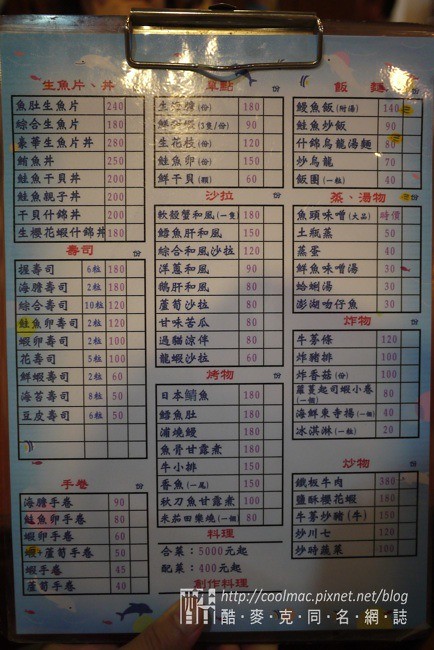 生魚片、丼 份
魚肚生魚片 240
綜合生魚片 180
豪華生魚片丼 280
鮪魚丼 250
鮭魚干貝丼 200
鮭魚親子丼 200
干貝什錦丼 200
生櫻花蝦什錦丼 180
壽司 份
握壽司 6粒 180
海膽壽司 2粒 180
綜合壽司 10粒 120
鮭魚卵壽司 2粒 120
蝦卵壽司 2粒 100
花壽司 5粒 100
鮮蝦壽司 2粒 60
海苔壽司 8粒 50
豆皮壽司 6粒 50
手卷 份
海膽手卷 90
鮭魚卵手卷 80
蝦卵手卷 60
蝦蘆筍手卷 50
蝦手卷 45
蘆筍手卷 40
單點 份
生海膽(份) 180
(5隻/份) 90
生花枝(份) 120
鮭魚卵(份) 150
鮮干貝(顆) 60
沙拉 份
軟殼蟹和風(一隻) 180
鱈魚肝和風 180
綜合和風沙拉 120
洋蔥和風 90
鵝肝和風 80
蘆筍沙拉 80
甘味苦瓜 80
過貓涼伴 80
龍蝦沙拉 60
烤物 份
日本鯖魚 180
鱈魚肚 180
蒲燒鰻 180
魚骨甘露煮 180
牛小排 150
香魚(一尾) 150
秋刀魚甘露煮 100
米茄田樂燒(一個) 80
料理
合菜：5000元起
配菜：400元起
創作料理
飯 麵 份
鰻魚飯(附湯) 140
鮭魚炒飯 90
什錦烏龍湯麵 80
炒烏龍 70
飯團(一粒) 40
蒸、湯物 份
魚頭味噌(大品) 時價
土瓶蒸 50
蒸蛋 40
鮮魚味噌湯 30
蛤蜊湯 30
澎湖吻仔魚 30
炸物 份
牛蒡條 120
炸豬排 100
炸香菇(份) 100
蘿蔓起司蝦小卷(一個) 80
海鮮東寺揚(一個) 40
冰淇淋(一粒) 20
炒物 份
鐵板牛肉 380
鹽酥櫻花蝦 180
牛蒡炒豬(牛) 150
炒川七 120
炒時蔬菜 100
酷 http://coolmac.pixnet.net/blog
酷・麥・克・同・名・網・誌